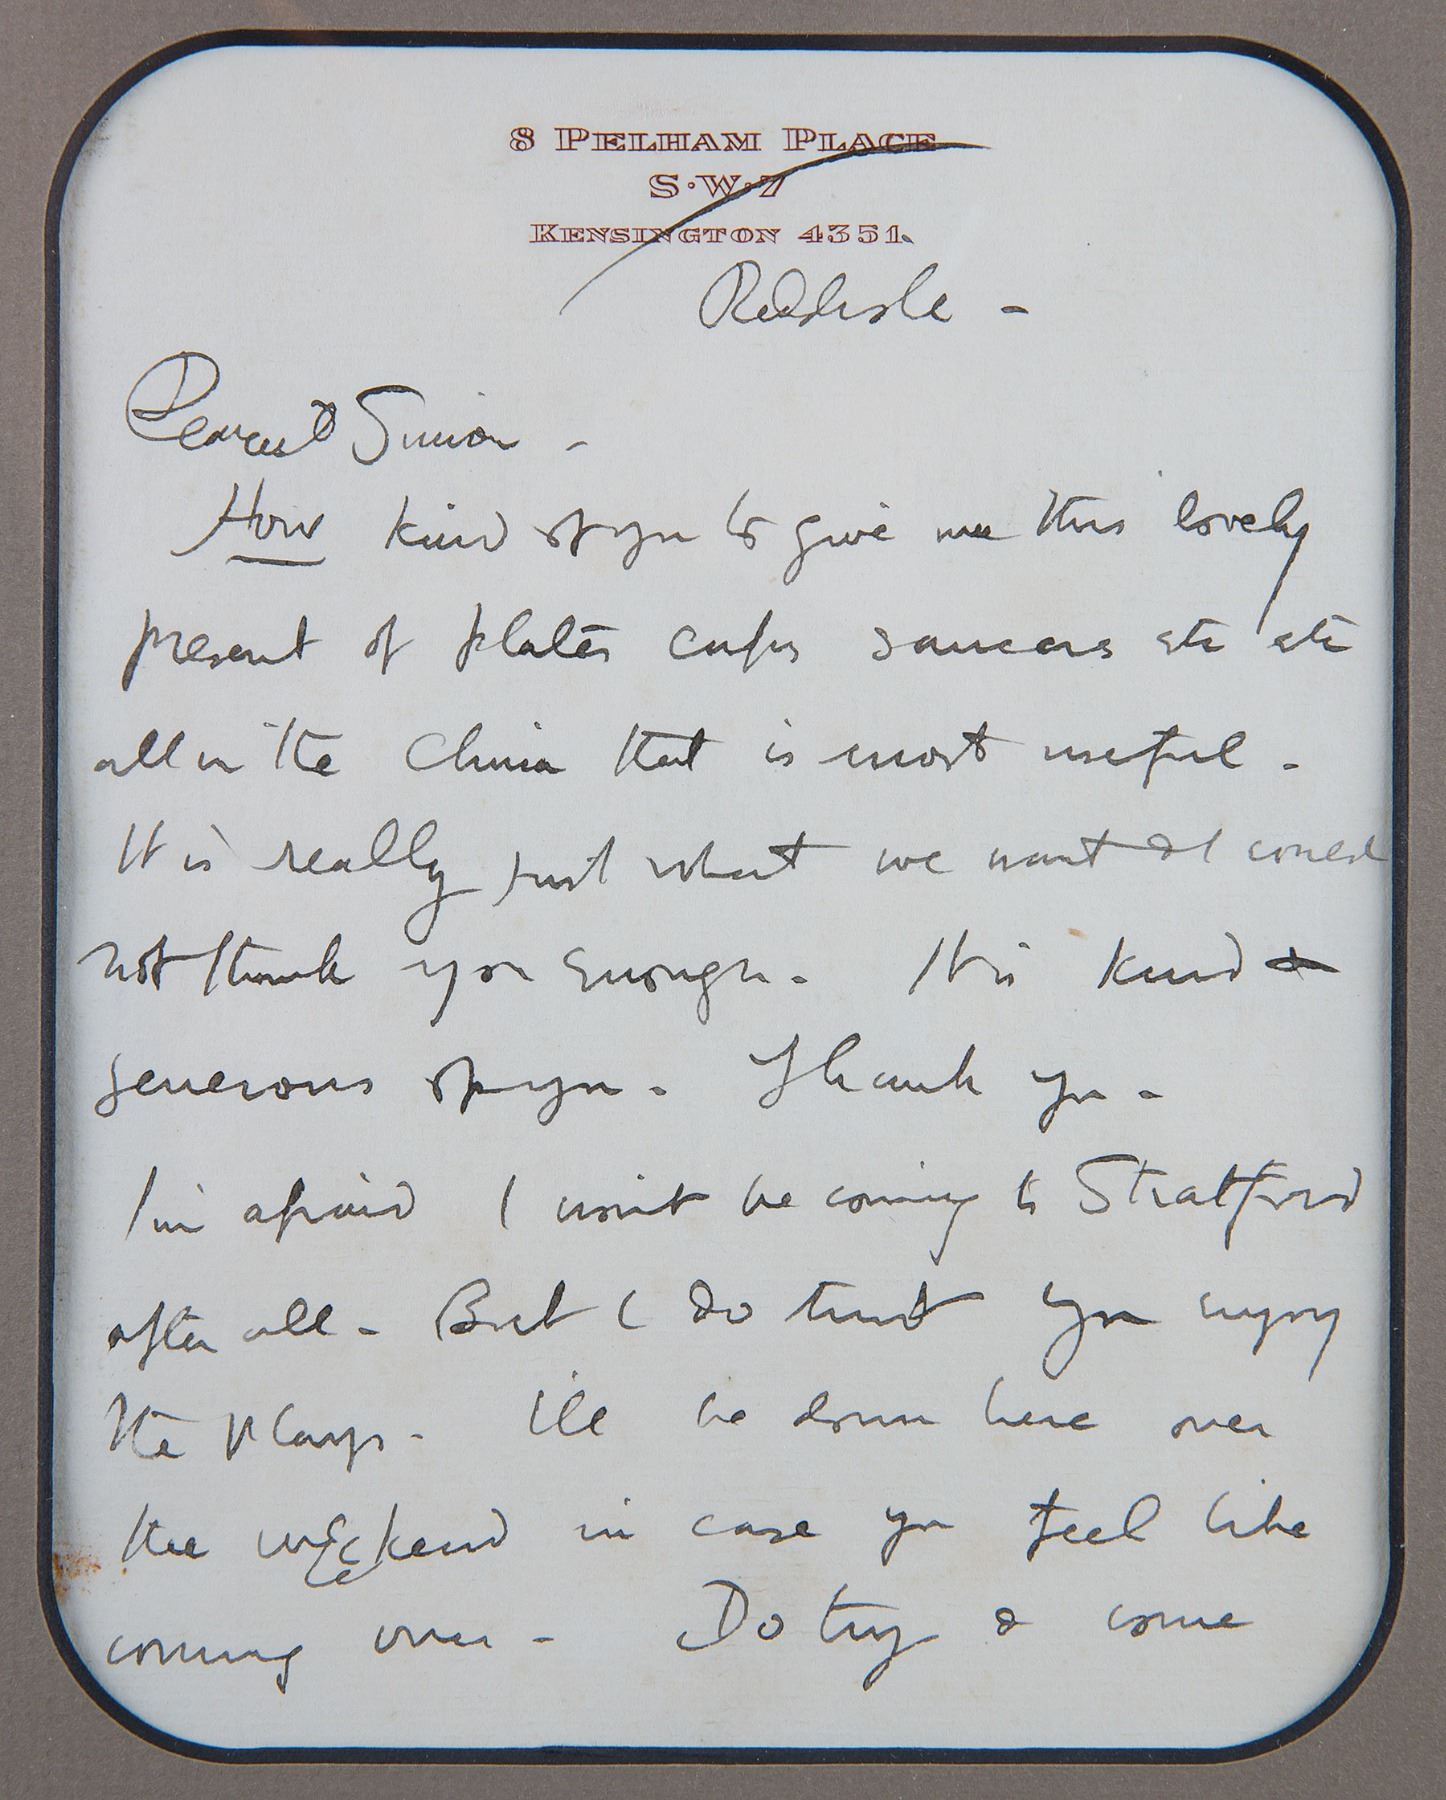 8 PELHAM PLACE
S·W·7
KENSINGTON 4351.
Reddish -
Dearest Simon -
How kind of you to give me this lovely
present of plates cups saucers etc etc
all in the china that is most useful -
It is really just what we want & I could
not thank you enough. It is kind &
generous of you. Thank you -
I'm afraid I won't be coming to Stratford
after all - But I do trust you enjoy
the plays - I'll be down here over
the weekend in case you feel like
coming over - Do try & come